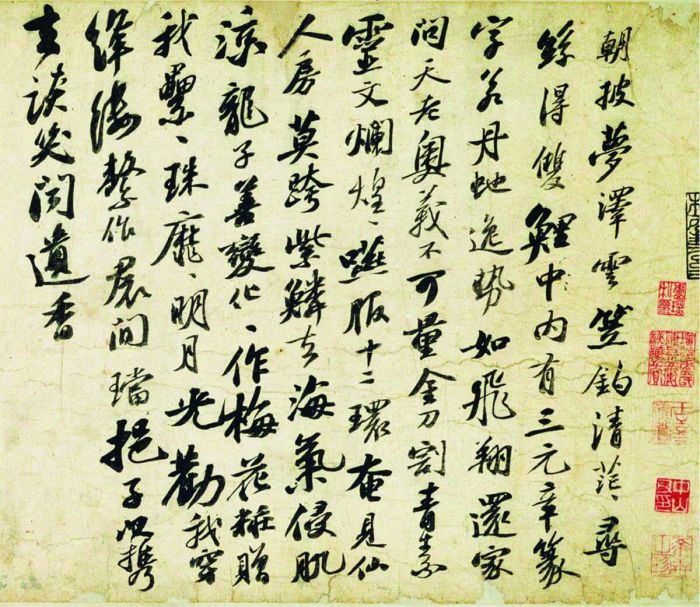 朝披夢澤雲笠釣清茫ゝ尋
絲得雙鯉中內有三元章篆
字若丹虵逸勢如飛翔還家
問天老奧義不可量金刀割青素
靈文爛煌ゝ嚥服十二環奄見仙
人房莫跨紫鱗去海氣侵肌
涼龍子善變化ゝ作梅花粧贈
我纍ゝ珠靡ゝ明月光勸我穿
絳縷繫作裙間璫挹子以攜
去談笑聞遺香